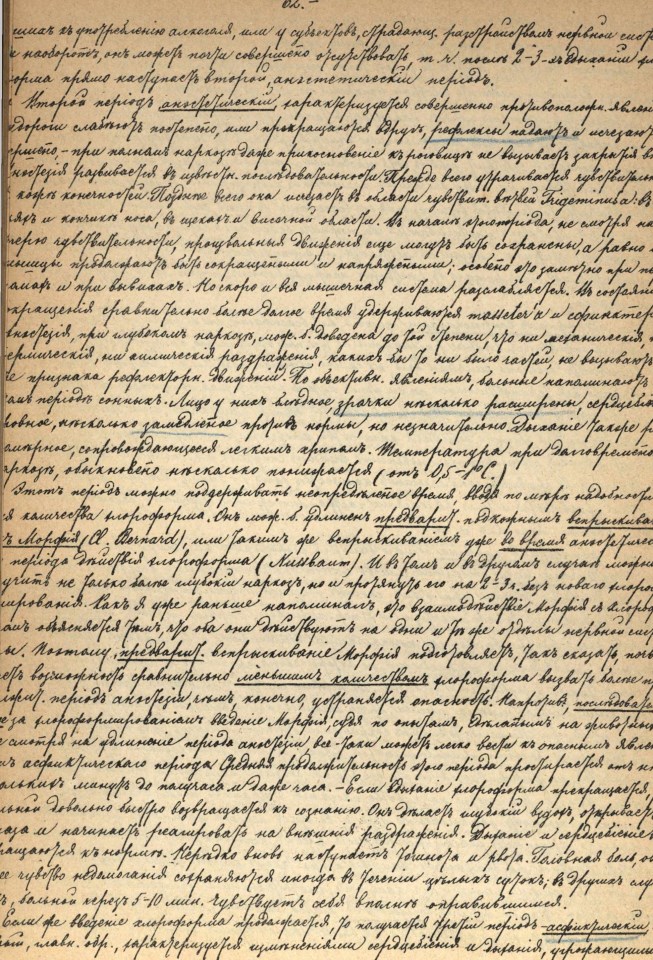 62.-
шихъ къ употребленію алкоголя, или у субъектовъ, страдающ. разстройствомъ нервной сист
наоборотъ, онъ можетъ почти совершенно отсутствовать, т. ч. послѣ 2-3-хъ вдыханій
орма прямо наступаетъ второй, анэстетическій періодъ.
Второй періодъ анэстетическій, характеризуется совершенно противополож. явлен
дороги слабѣютъ постепенно, или прекращаются вдругъ, рефлексы падаютъ и исчезаютъ
ершенно, - при полномъ наркозѣ даже прикосновеніе къ роговицѣ не вызываетъ закрытія в
нэстезія развивается въ извѣстн. послѣдовательности. Прежде всего утрачивается чувствитель
кожѣ конечностей. Позднѣе всего она исчезаетъ въ области чувствит. вѣтвей Trigeminus'a: въ
яхъ и кончикѣ носа, въ щекахъ и височной области. Въ началѣ этого періода, не смотря на
терю чувствительности, произвольныя движенія еще могутъ быть сохранены, а равно
мышцы продолжаютъ быть сокращенными и напряженными; особенно это замѣтно при пе
ломахъ и при вывихахъ. Но скоро и вся мышечная система разслабляется. Въ состояні
окращенія сравнительно болѣе долгое время удерживаются masseter'a и сфинктер
нэстезія, при глубокомъ наркозѣ, мож. б. доведена до той степени, что ни механическія,
ермическія, ни химическія раздраженія, какихъ бы то ни было частей, не вызываютъ
е признака рефлекторн. движеній. По объективн. явленіямъ, больные напоминаютъ
омъ періодѣ сонныхъ. Лицо у нихъ блѣдное, зрачки нѣсколько расширены, сердцебіе
ровное, нѣсколько замедленное противъ нормы, но незначительно. Дыханіе также р
омѣрное, сопровождающееся легкимъ храпомъ. Температура при долговременно
аркозѣ, обыкновенно нѣсколько понижается (отъ 0,5-1°C.)
Этотъ періодъ можно поддерживать неопредѣленное время, вводя по мѣрѣ надобност
я количества хлороформа. Онъ мож. б. удлиненъ предварит. подкожнымъ впрыскиван
ъ Морфія (Cl. Bernard), или такимъ же впрыскиваніемъ уже во время анэстетическ
періода дѣйствія хлороформа (Nussbaum). И въ томъ и въ другомъ случаѣ можно
учить не только болѣе глубокій наркозъ, но и протянуть его на 2-3 ч. безъ новаго хлороф
мированія. Какъ я уже раньше напоминалъ, это взаимодѣйствіе Морфія съ хлороф
омъ объясняется тѣмъ, что оба они дѣйствуютъ на одни и тѣ же отдѣлы нервной сист
ы. Поэтому, предварит. впрыскиваніе Морфія подготовляетъ, такъ сказать, почв
етъ возможность сравнительно меньшимъ количествомъ хлороформа вызвать болѣе п
періодъ анэстезіи, чѣмъ, конечно, устраняется опасность. Напротивъ, послѣдова
е за хлороформированіемъ введеніе Морфія, судя по опытамъ, сдѣланнымъ на животны
е смотря на удлиненіе періода анэстезіи, все-таки можетъ легко вести къ опаснымъ явле
мъ асфиктическаго періода. Средняя продолжительность этого періода простирается отъ н
колькихъ минутъ до получаса и даже часа. - Если вдыханіе хлороформа прекращается,
льной довольно быстро возвращается къ сознанію. Онъ дѣлаетъ глубокій вздохъ, открывает
лаза и начинаетъ реагировать на внѣшнія раздраженія. Дыханіе и сердцебіеніе
ращаются къ нормѣ. Нерѣдко вновь наступаетъ тошнота и рвота. Головная боль, о
ее чувство недомоганія сохраняются иногда въ теченіи цѣлыхъ сутокъ; въ другихъ слу
ъ, больной черезъ 5-10 мин. чувствуетъ себя вполнѣ оправившимся.
Если же введеніе хлороформа продолжается, то получается третій періодъ - асфиктическій
рый, главн. обр., характеризуется измѣненіями сердцебіенія и дыханія, угрожающими